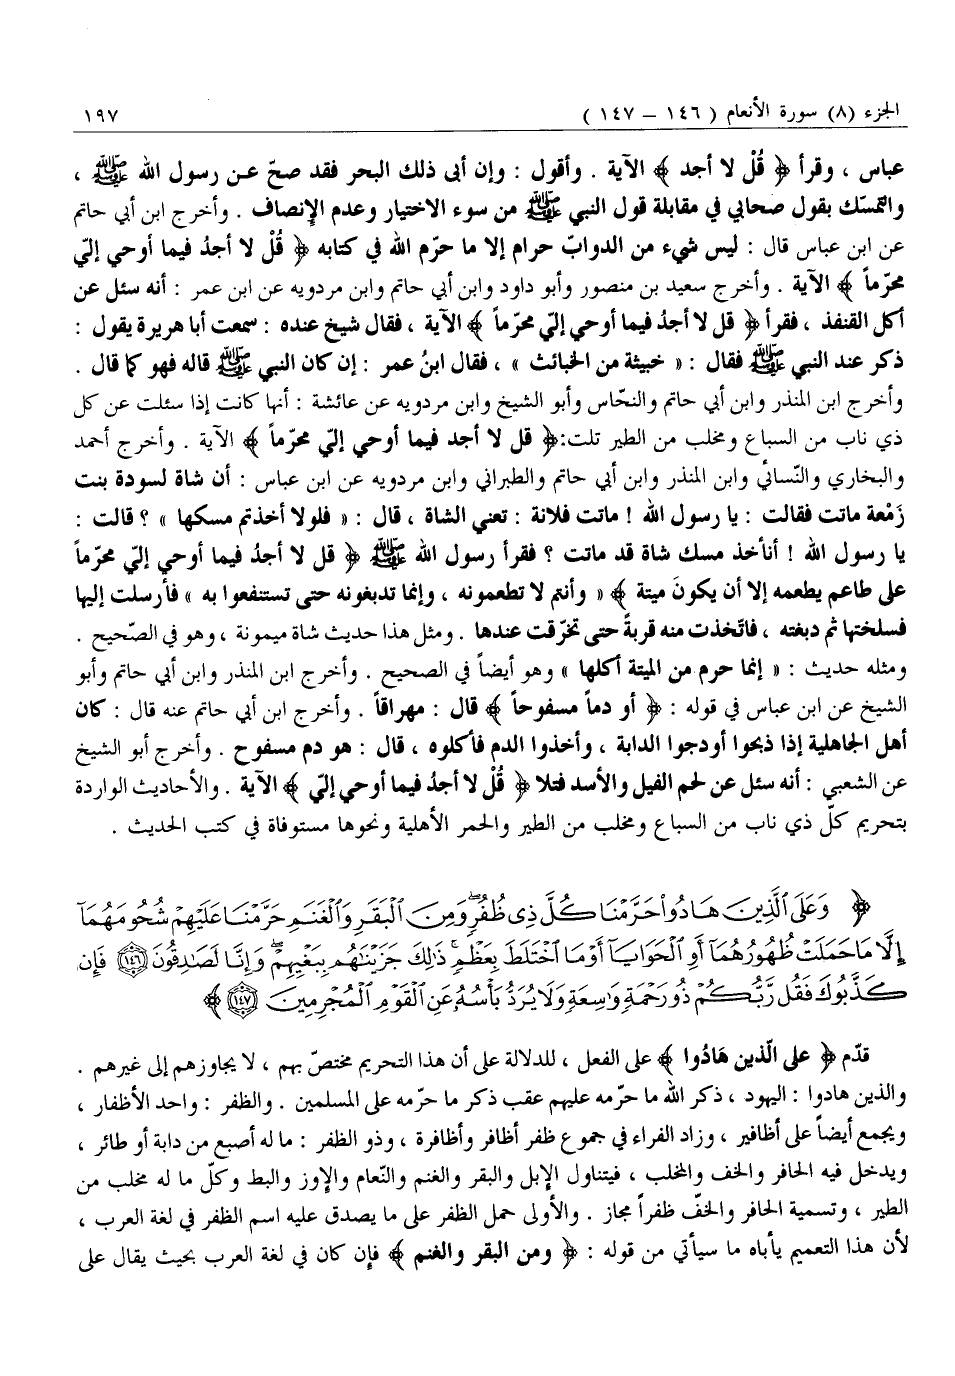 الجزء (٨) سورة الأنعام ( ١٤٦ – ١٤٧ ) ١٩٧
عباس ، وقرأ ﴿ قُلْ لا أجد ﴾ الآية . وأقول : وإن أبى ذلك البحر فقد صحّ عن رسول الله ﷺ ،
والتمسّك بقول صحابي في مقابلة قول النبي ﷺ من سوء الاختيار وعدم الإنصاف . وأخرج ابن أبي حاتم
عن ابن عباس قال : ليس شيء من الدوابّ حرام إلا ما حرّم الله في كتابه ﴿ قُلْ لا أجدُ فيما أوحي إليّ
محرّماً ﴾ الآية . وأخرج سعيد بن منصور وأبو داود وابن أبي حاتم وابن مردويه عن ابن عمر : أنه سئل عن
أكل القنفذ ، فقرأ ﴿ قل لا أجدُ فيما أوحي إليّ محرّماً ﴾ الآية ، فقال شيخ عنده : سمعت أبا هريرة يقول :
ذكر عند النبي ﷺ فقال : « خبيثة من الخبائث » ، فقال ابنُ عمر : إن كان النبي ﷺ قاله فهو كما قال .
وأخرج ابن المنذر وابن أبي حاتم والنحّاس وأبو الشيخ وابن مردويه عن عائشة : أنها كانت إذا سئلت عن كل
ذي ناب من السباع ومخلب من الطير تلت:﴿ قل لا أجد فيما أوحي إليّ محرّماً ﴾ الآية . وأخرج أحمد
والبخاري والنّسائي وابن المنذر وابن أبي حاتم والطبراني وابن مردويه عن ابن عباس : أن شاة لسودة بنت
زَمْعة ماتت فقالت : يا رسول الله ! ماتت فلانة : تعني الشاة ، قال : « فلولا أخذتم مسكها » ؟ قالت :
يا رسول الله ! أنأخذ مسك شاة قد ماتت ؟ فقرأ رسول الله ﷺ ﴿ قل لا أجدُ فيما أوحي إليّ محرّماً
على طاعم يطعمه إلا أن يكونَ ميتة ﴾ « وأنتم لا تطعمونه ، وإنما تدبغونه حتى تستنفعوا به » فأرسلت إليها
فسلختها ثم دبغته ، فاتّخذت منه قربةً حتى تخرّقت عندها . ومثل هذا حديث شاة ميمونة ، وهو في الصّحيح .
ومثله حديث : « إنما حرم من الميتة أكلها » وهو أيضاً في الصحيح . وأخرج ابن المنذر وابن أبي حاتم وأبو
الشيخ عن ابن عباس في قوله : ﴿ أو دماً مسفوحاً ﴾ قال : مهراقاً . وأخرج ابن أبي حاتم عنه قال : كان
أهل الجاهلية إذا ذبحوا أودجوا الدابة ، وأخذوا الدم فأكلوه ، قال : هو دم مسفوح . وأخرج أبو الشيخ
عن الشعبي : أنه سئل عن لحم الفيل والأسد فتلا ﴿ قُلْ لا أجدُ فيما أوحي إليّ ﴾ الآية . والأحاديث الواردة
بتحريم كلّ ذي ناب من السباع ومخلب من الطير والحمر الأهلية ونحوها مستوفاة في كتب الحديث .
﴿ وَعَلَى ٱلَّذِينَ هَادُوا۟ حَرَّمْنَا كُلَّ ذِى ظُفُرٍ ۖ وَمِنَ ٱلْبَقَرِ وَٱلْغَنَمِ حَرَّمْنَا عَلَيْهِمْ شُحُومَهُمَآ
إِلَّا مَا حَمَلَتْ ظُهُورُهُمَآ أَوِ ٱلْحَوَايَآ أَوْ مَا ٱخْتَلَطَ بِعَظْمٍ ۚ ذَٰلِكَ جَزَيْنَٰهُم بِبَغْيِهِمْ ۖ وَإِنَّا لَصَٰدِقُونَ ﴿١٤٦﴾ فَإِن
كَذَّبُوكَ فَقُل رَّبُّكُمْ ذُو رَحْمَةٍ وَٰسِعَةٍ وَلَا يُرَدُّ بَأْسُهُۥ عَنِ ٱلْقَوْمِ ٱلْمُجْرِمِينَ ﴿١٤٧﴾ ﴾
قدّم ﴿ على الّذين هَادُوا ﴾ على الفعل ، للدلالة على أن هذا التحريم مختصّ بهم ، لا يجاوزهم إلى غيرهم .
والذين هادوا : اليهود ، ذكر الله ما حرّمه عليهم عقب ذكر ما حرّمه على المسلمين . والظفر : واحد الأظفار ،
ويجمع أيضاً على أظافير ، وزاد الفراء في جموع ظفر أظافر وأظافرة ، وذو الظفر : ما له أصبع من دابة أو طائر ،
ويدخل فيه الحافر والخف والمخلب ، فيتناول الإبل والبقر والغنم والنّعام والإوز والبط وكلّ ما له مخلب من
الطير ، وتسمية الحافر والخفّ ظفراً مجاز . والأولى حمل الظفر على ما يصدق عليه اسم الظفر في لغة العرب ،
لأن هذا التعميم يأباه ما سيأتي من قوله : ﴿ ومن البقر والغنم ﴾ فإن كان في لغة العرب بحيث يقال على